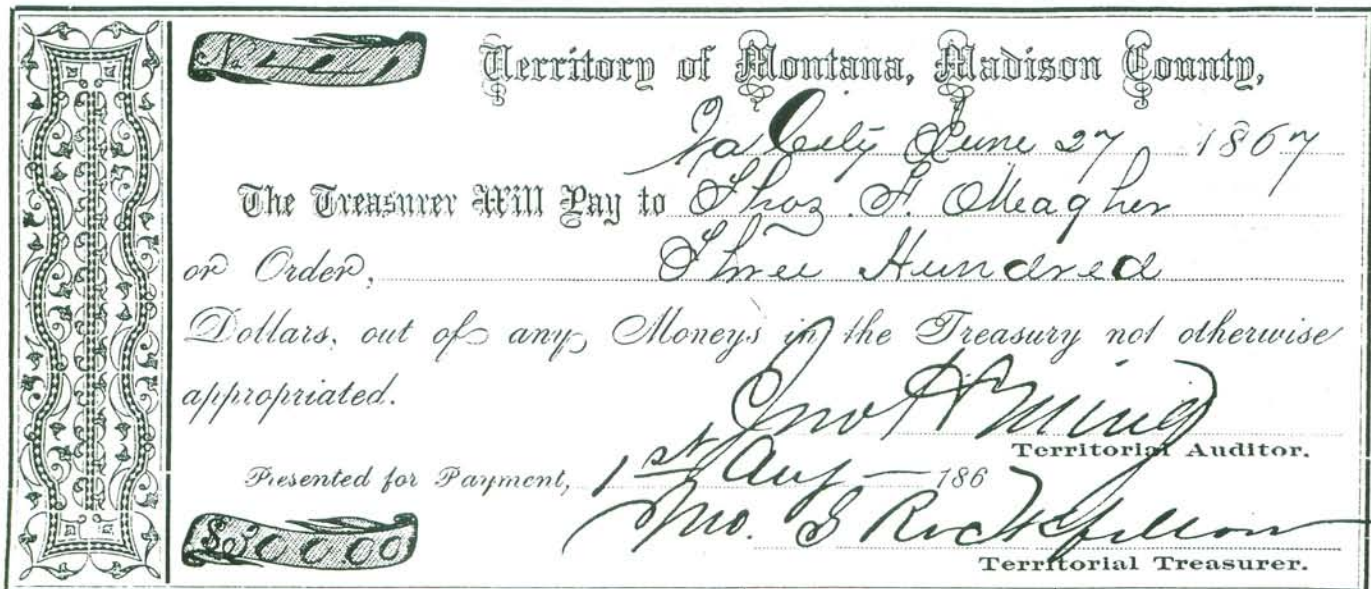 Territory of Montana, Madison County,
Va City June 27 1867
The Treasurer Will Pay to Thos. F. Meagher
or Order, Three Hundred
Dollars, out of any Moneys in the Treasury not otherwise
appropriated.
Jno H Ming
Territorial Auditor.
Presented for Payment, 1st Aug 186
Jno. S Rockfellow
$300.00
Territorial Treasurer.